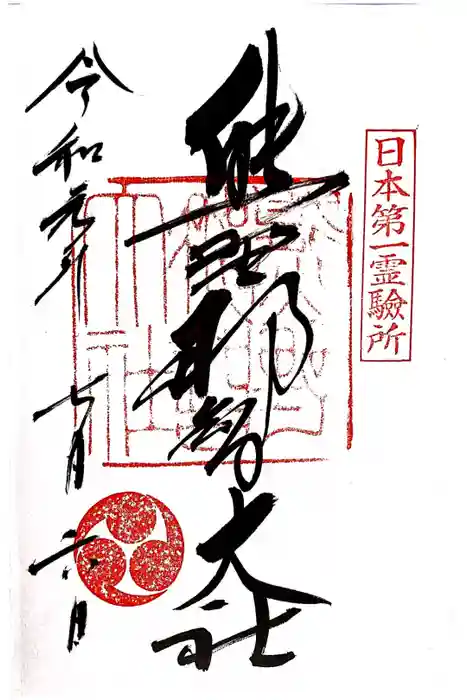 日本第一霊驗所
熊野那智大社
令和元年 七月 六日